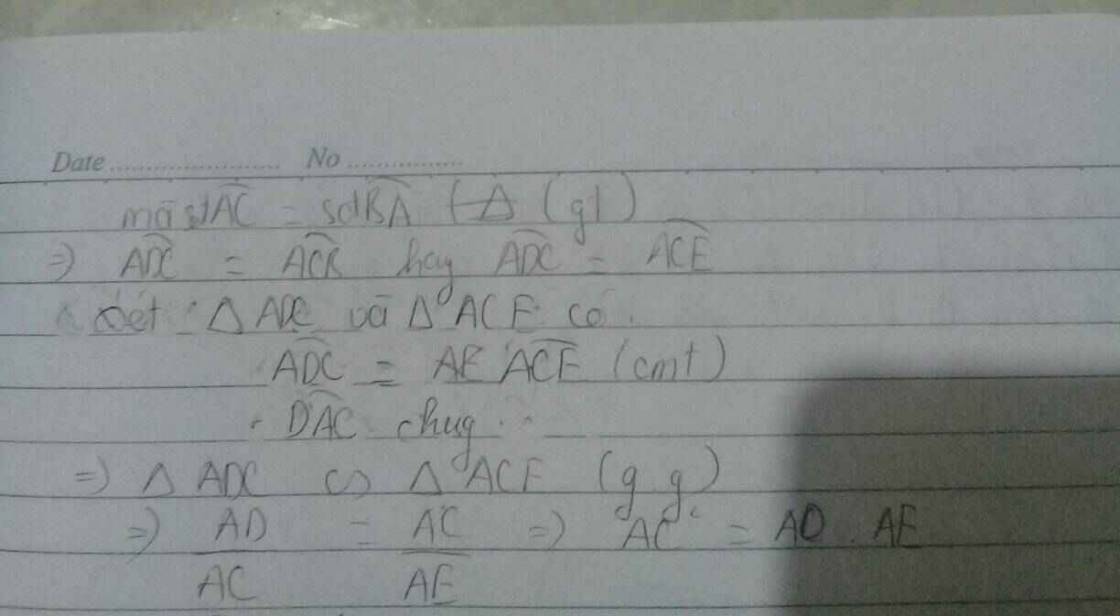 Date.................... No.................
mà sđAC = sđBA (gt)
=> ADC = ACB hay ADC = ACE
xét : Δ ADC và Δ ACE có .
ADC = AE ACE (cmt)
. DAC chug .
=> Δ ADC ∽ Δ ACE (g.g)
=> AD/AC = AC/AE => AC² = AD . AE